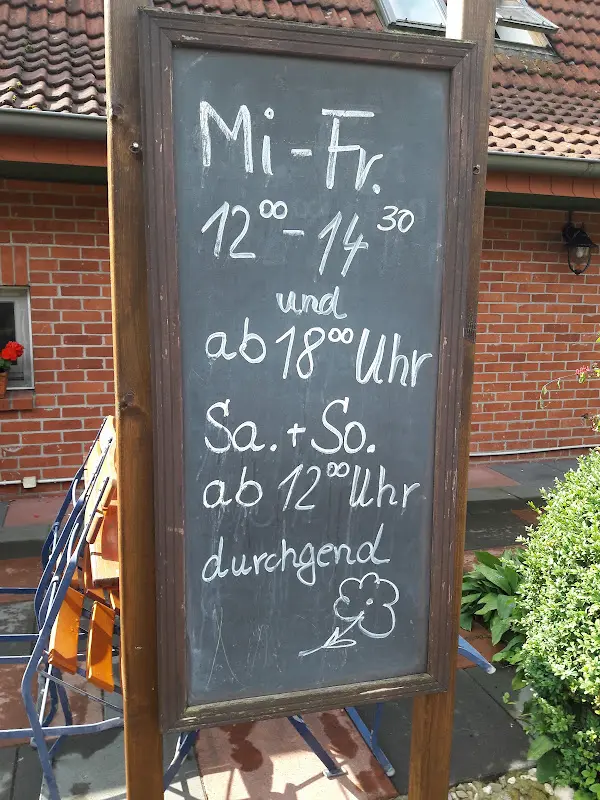 Mi - Fr.
12⁰⁰ - 14³⁰
und
ab 18⁰⁰ Uhr
Sa. + So.
ab 12⁰⁰ Uhr
durchgend